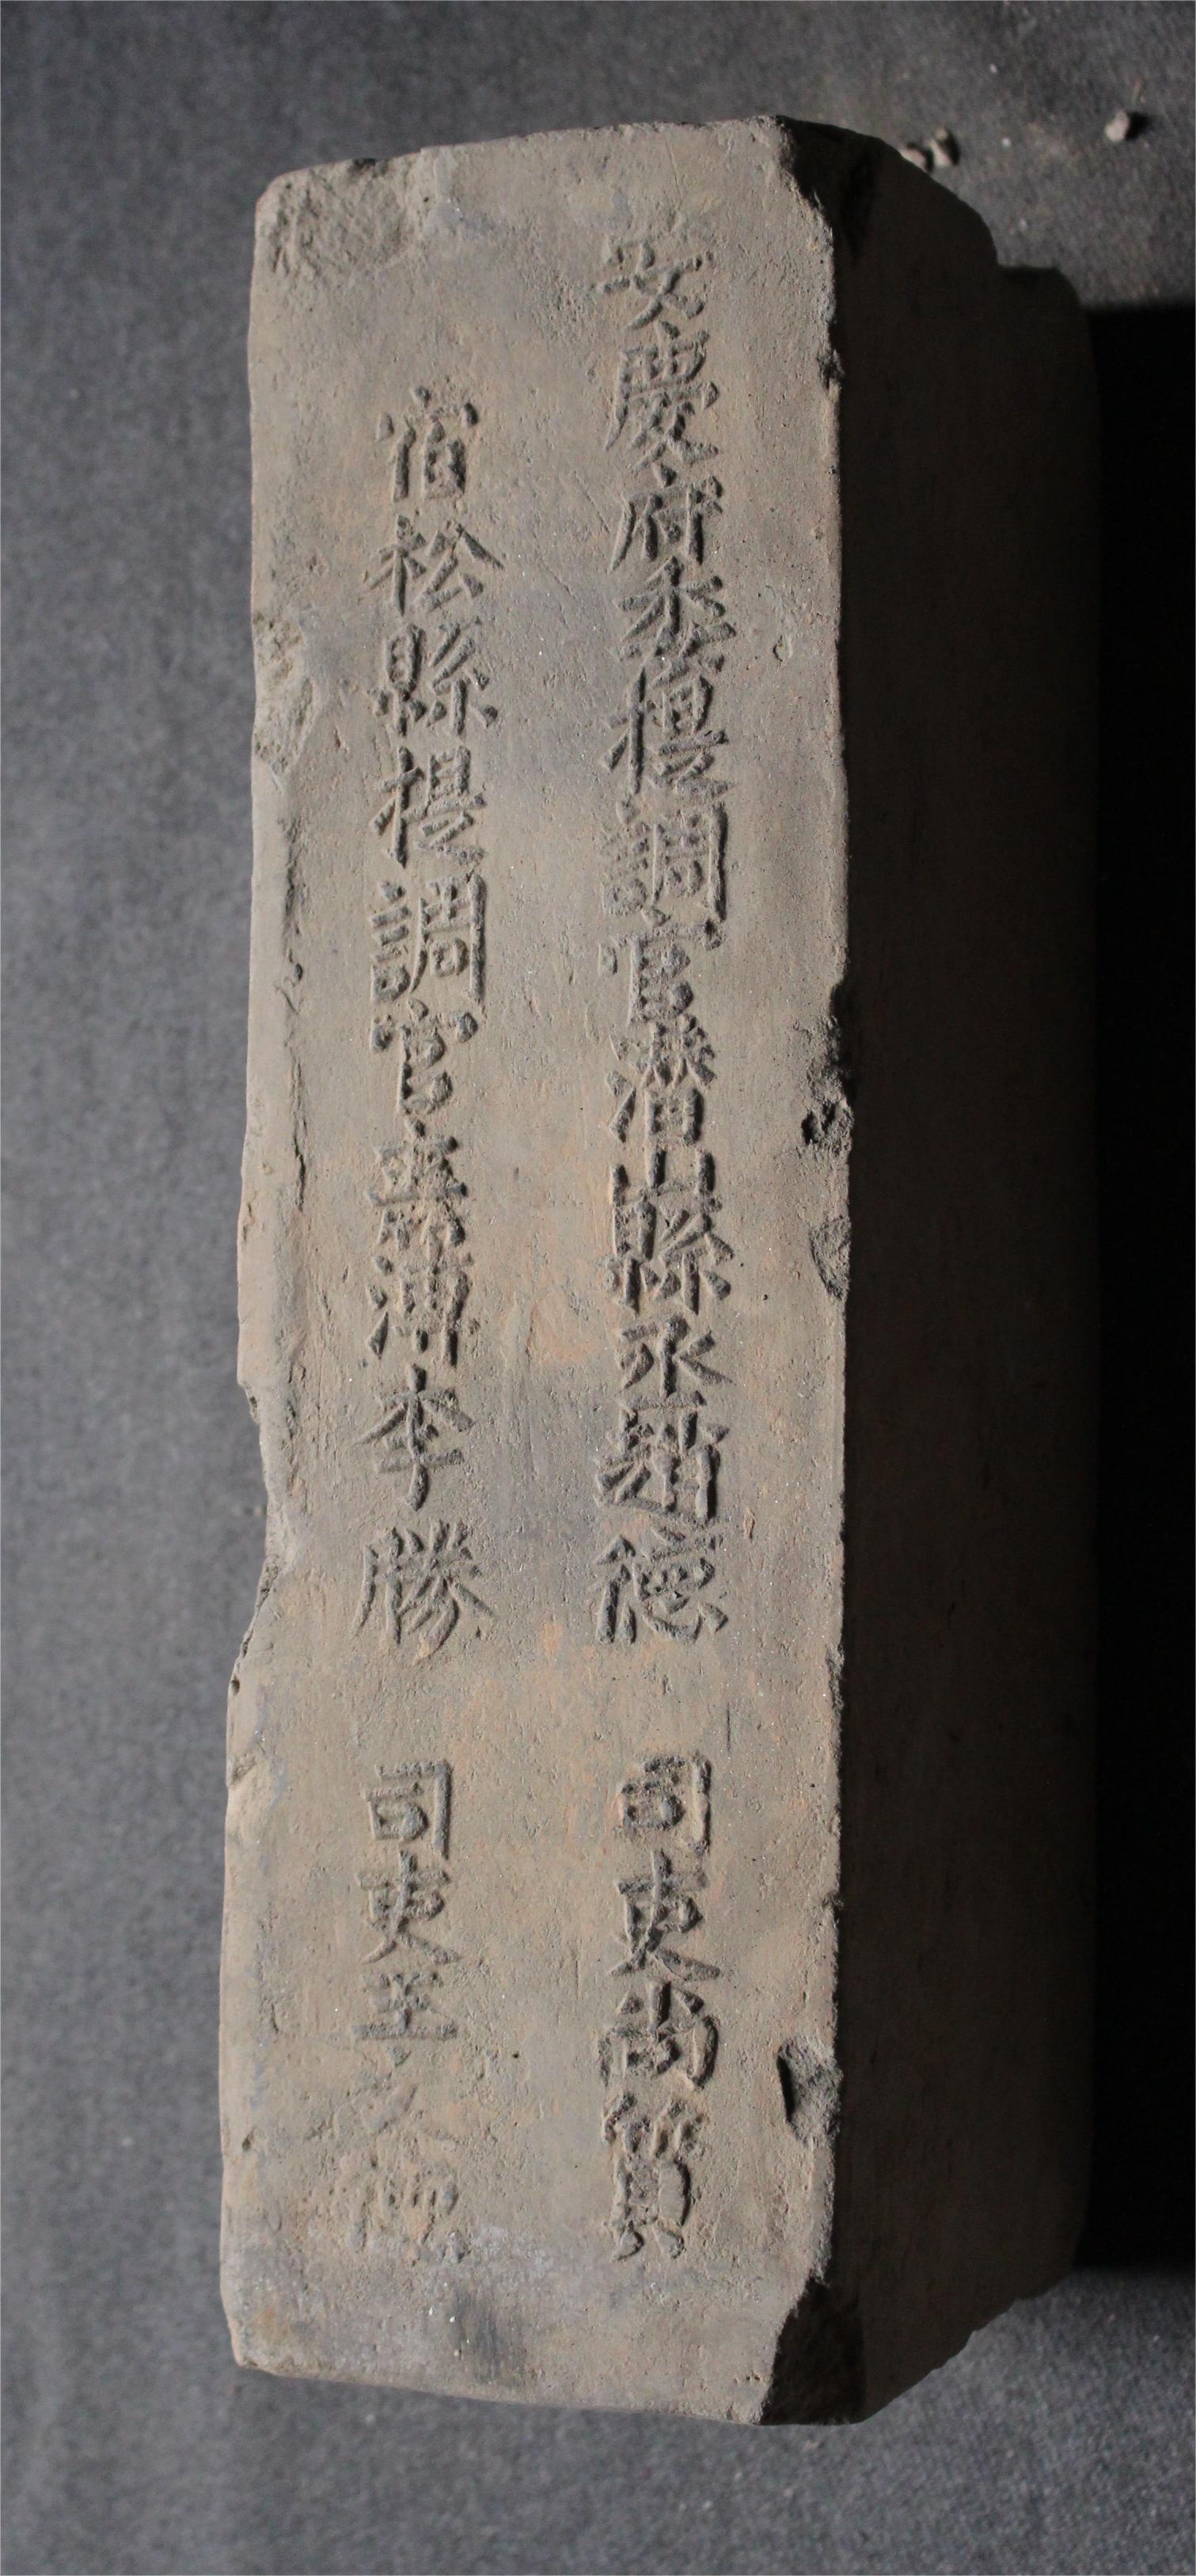 安慶府委提調官潛山縣丞趙德　司吏尚質
宿松縣提調官主簿李勝　司吏王文德